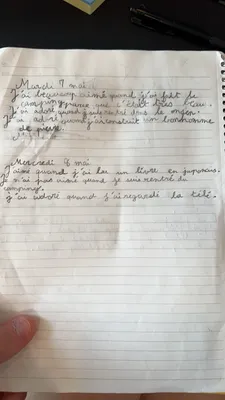 Mardi 7 mai
J'ai beaucoup aimé quand j'ai fait le
camping parce que c'était très beau.
J'ai adoré quand je suis rentré dans le
J'ai adoré quand j'ai construit un bonhomme
de pierre.
Mercredi 8 mai
J'aime quand j'ai lu un livre en japonais.
Je n'ai pas aimé quand je suis rentré du
camping.
J'ai adoré quand j'ai regardé la télé.